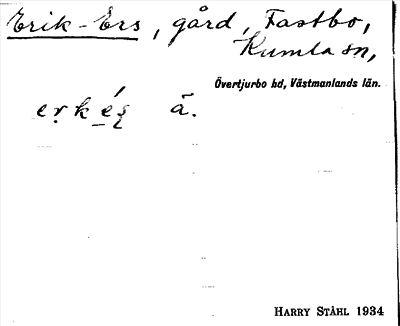 Erik-Ers, gård, Fastbo,
Kumla sn,
Övertjurbo hd, Västmanlands län.
ạ̄.
HARRY STÅHL 1934